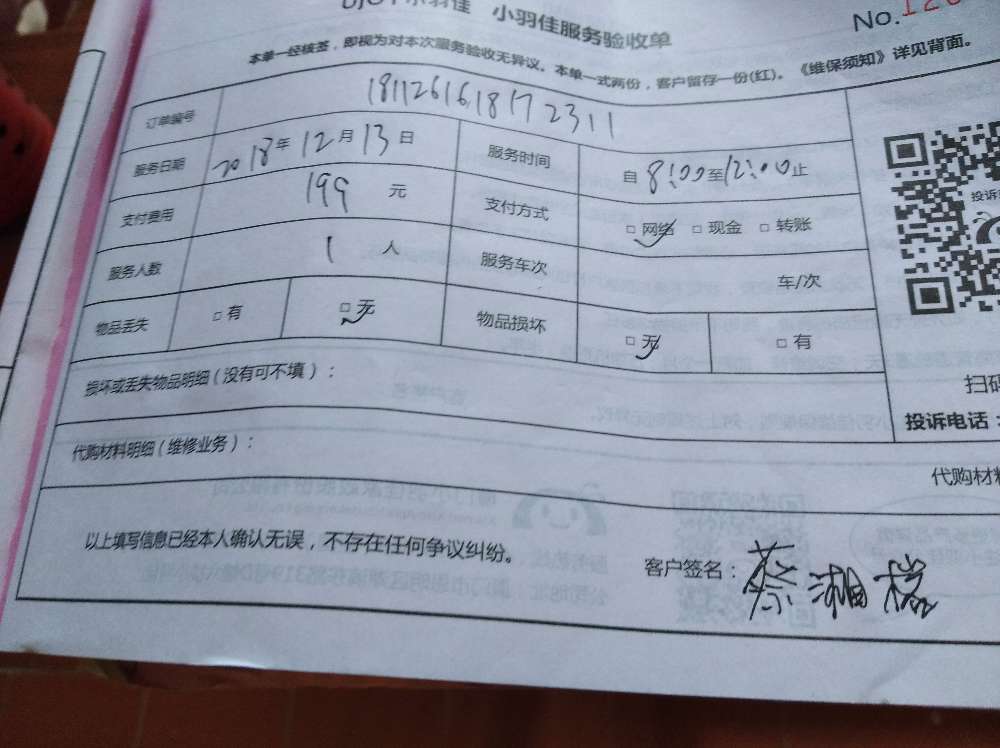 小羽佳 小羽佳服务验收单
No.126
本单一经核签，即视为对本次服务验收无异议。本单一式两份，客户留存一份(红)。《维保须知》详见背面。
订单编号 1811261618172311
服务日期 2018年12月13日 服务时间 自8:00至12:00止
支付费用 199 元 支付方式 □ 网络 □ 现金 □ 转账
服务人数 1 人 服务车次 车/次
物品丢失 □ 有 □ 无 物品损坏 □ 无 □ 有
损坏或丢失物品明细（没有可不填）：
扫码
投诉电话：
代购材料明细（维修业务）：
代购材料
以上填写信息已经本人确认无误，不存在任何争议纠纷。
客户签名：蔡湘